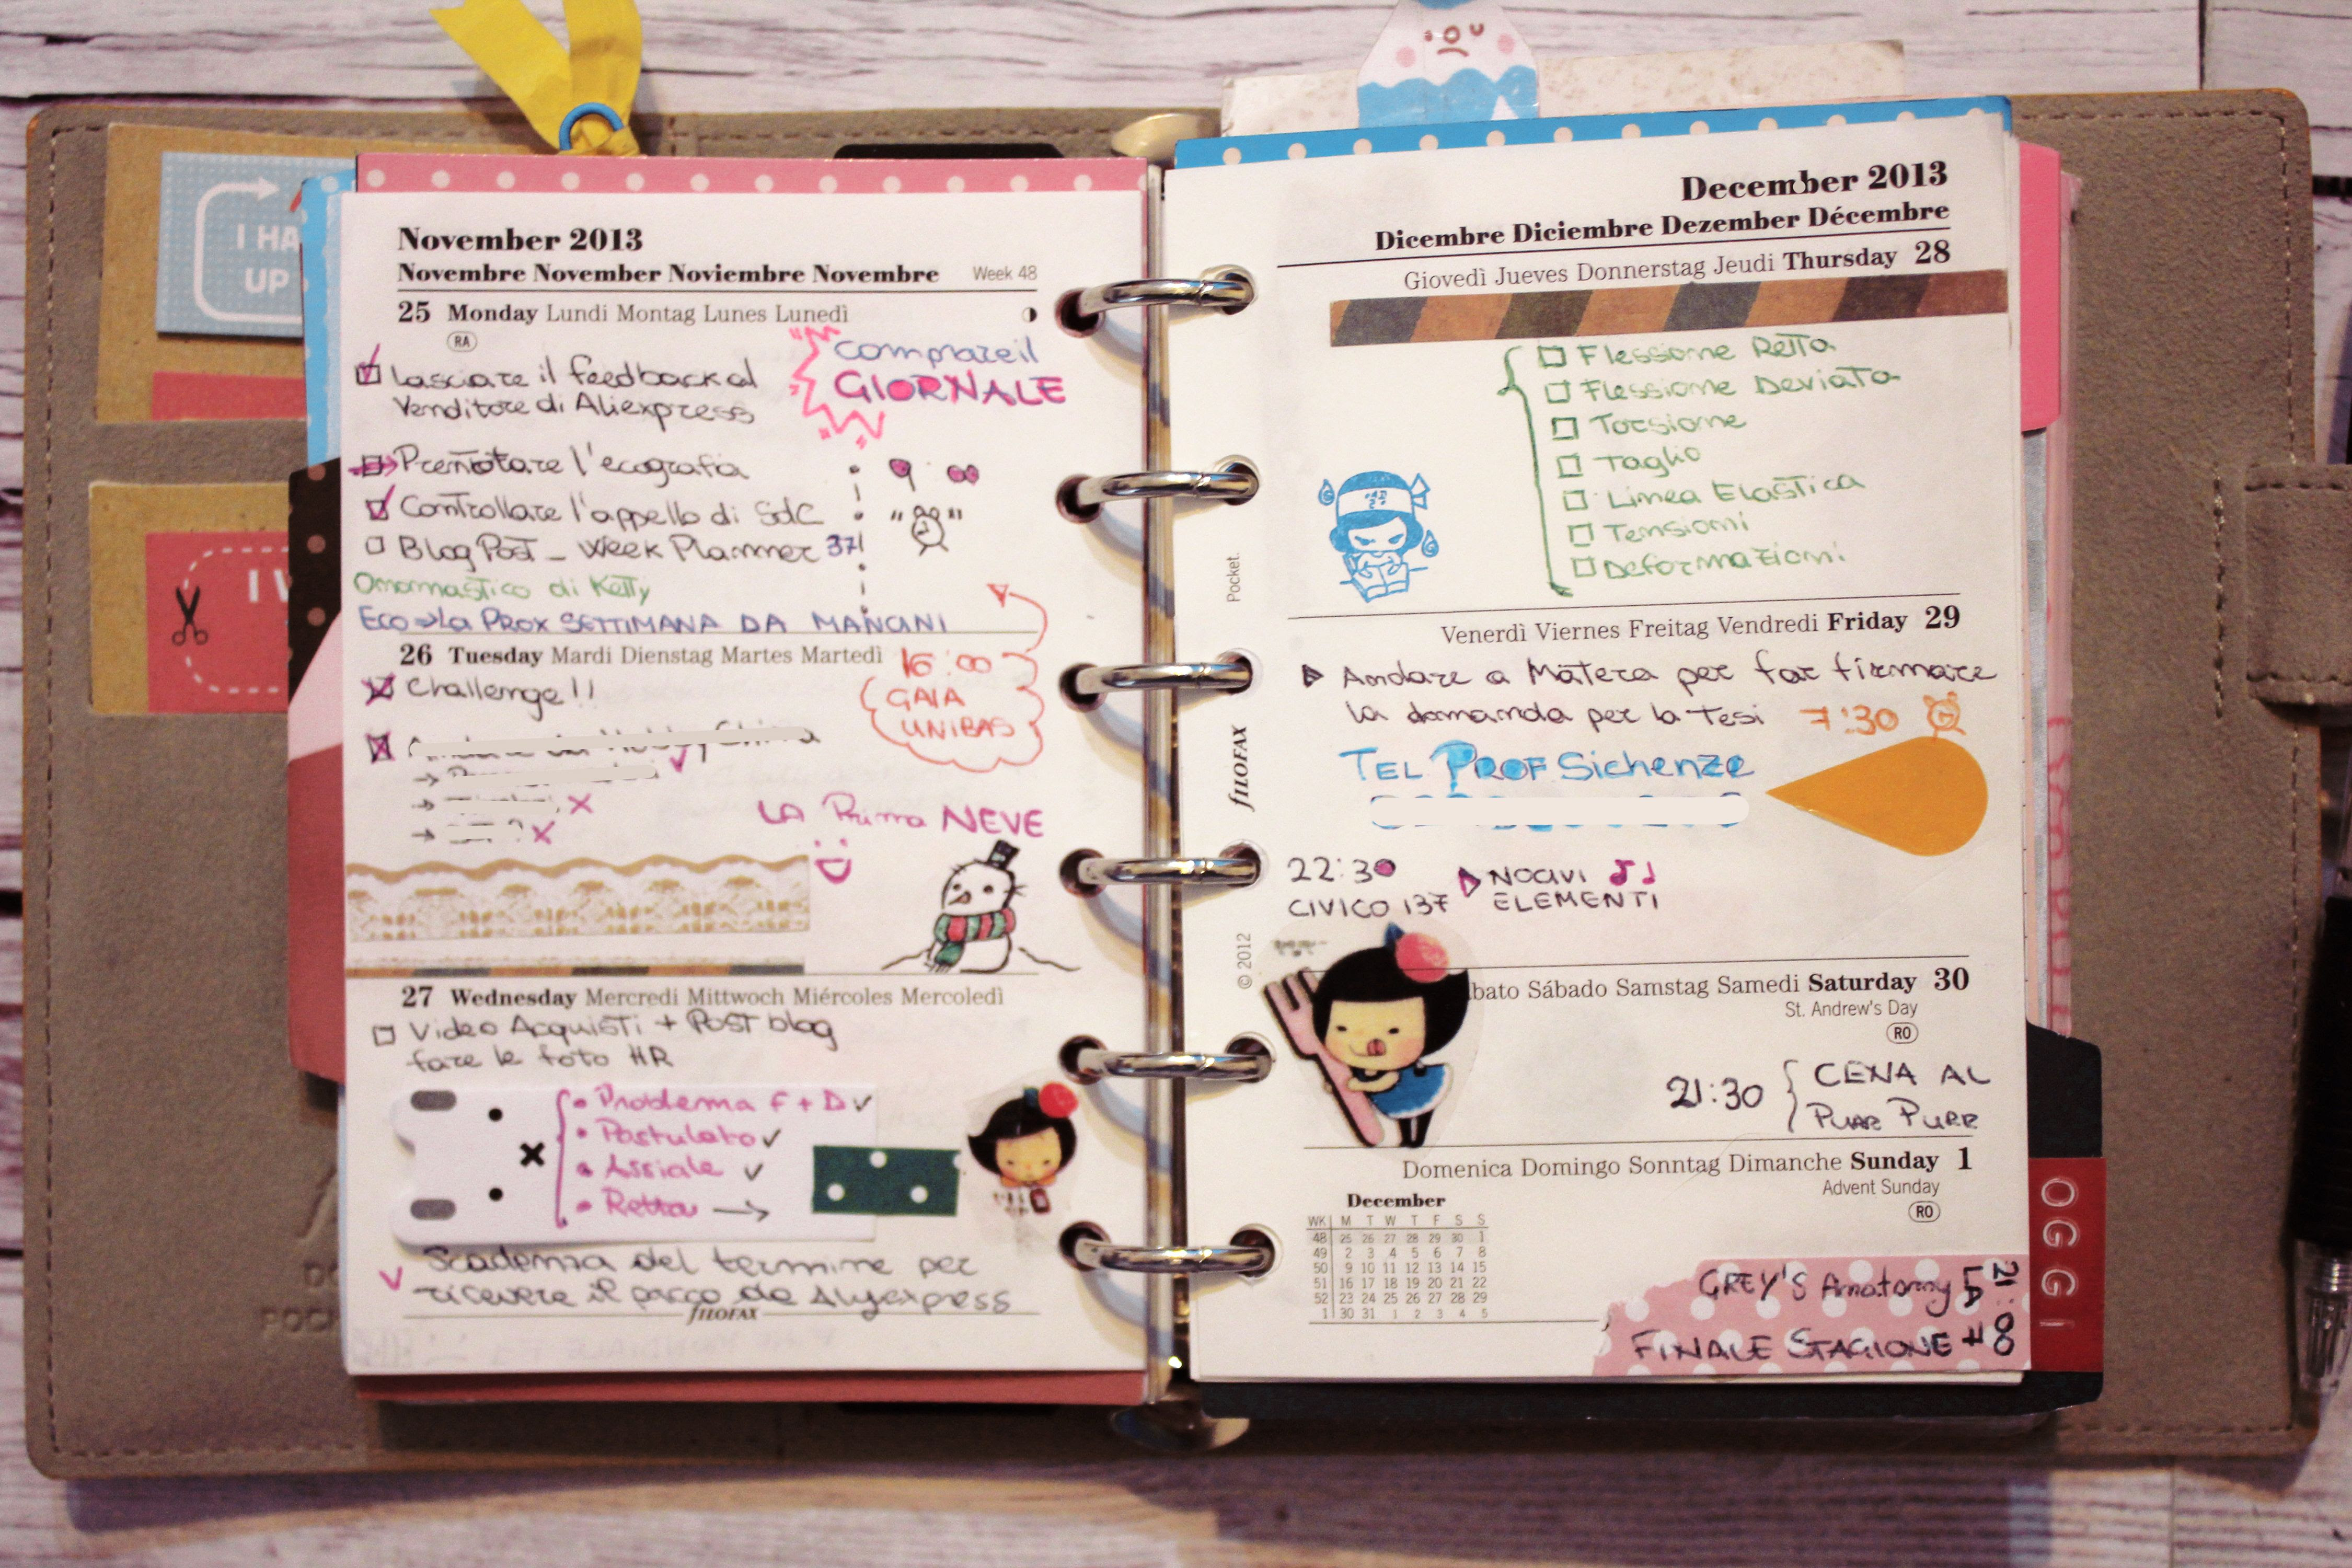 I HA
UP
I V
November 2013
Novembre November Noviembre Novembre Week 48
25 Monday Lundi Montag Lunes Lunedì
RA
Lasciare il feedback al
Venditore di Aliexpress
comprare il
GIORNALE
Prenotare l'ecografia
9:00
Controllare l'appello di SdC
Blog Post - Week Planner 37
Onomastico di Ketty
Eco → La PROX SETTIMANA DA MANCINI
26 Tuesday Mardi Dienstag Martes Martedì
16:00
GAIA
UNIBAS
Challenge!!
LA Prima NEVE
27 Wednesday Mercredi Mittwoch Miércoles Mercoledì
Video Acquisti + Post blog
fare le foto HR
• Problema F + D ✓
• Postulato ✓
• Assiale ✓
• Retta →
Scadenza del termine per
ricevere il pacco da Aliyexpress
filofax
December 2013
Dicembre Diciembre Dezember Décembre
Giovedì Jueves Donnerstag Jeudi Thursday 28
Flessione Retta
Flessione Deviata
Torsione
Taglio
Linea Elastica
Tensioni
Deformazioni
Pocket.
filofax
© 2012
Venerdì Viernes Freitag Vendredi Friday 29
Andare a Matera per far firmare
la domanda per la Tesi 7:30
TEL PROF Sichenze
22:30
CIVICO 137
NOUVI
ELEMENTI
bato Sábado Samstag Samedi Saturday 30
St. Andrew's Day
RO
21:30
CENA AL
PURR PURR
Domenica Domingo Sonntag Dimanche Sunday 1
Advent Sunday
RO
December
WK M T W T F S S
48 25 26 27 28 29 30 1
49 2 3 4 5 6 7 8
50 9 10 11 12 13 14 15
51 16 17 18 19 20 21 22
52 23 24 25 26 27 28 29
1 30 31 1 2 3 4 5
GREY'S Anatomy LA
FINALE STAGIONE #
21:00
OGGI